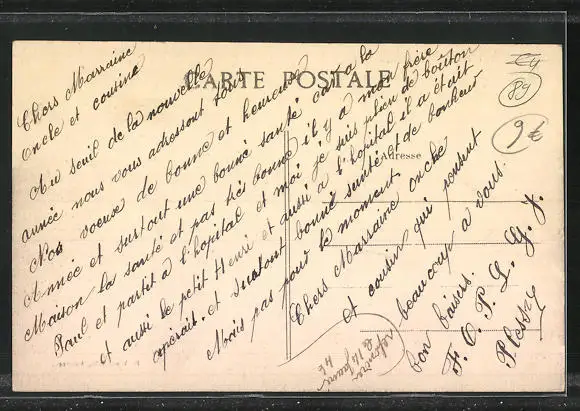 CARTE POSTALE
Adresse
Chers Marraine
oncle et cousine
Au seuil de la nouvelle
année nous vous adressont tous
Nos voeuse de bonne et heureuse
Année et surtout une bonne santé car a la
Maison la santé et pas très bonne il y a mon frère
Paul et partit à l'hopital et moi je suis plien de boûton
et aussi le petit Henri et aussi a l'hopital il a était
opérait. et surtout bonne santé et de bonheur
Mais pas pour le moment.
Chers Marraine oncle
et cousin qui pensent
beaucoup a vous.
bon baisers.
F. O. P. L. G. J.
Plessry
89
9€